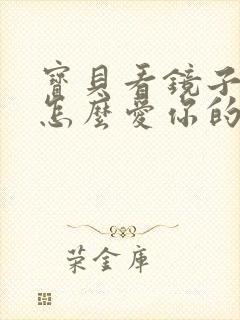 寶貝看鏡子
怎麼愛你的
荣金庫